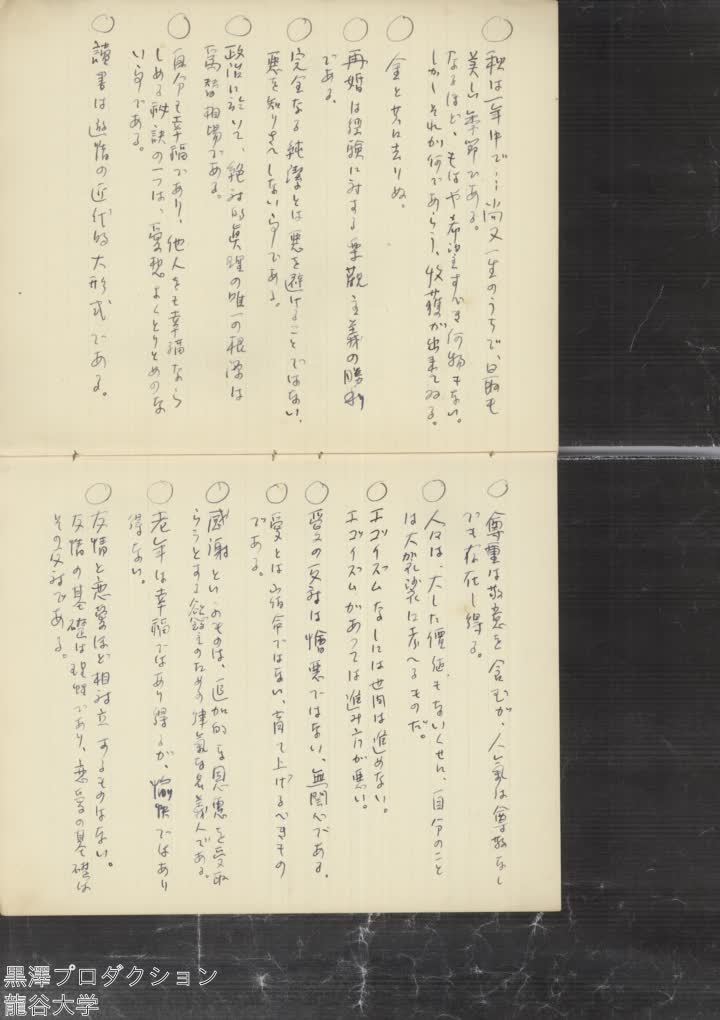 ○ 秋は一年中で…尚又一生のうちで、最も
美しい季節である。
なるほど、もはや希望すべき何物もない。
しかしそれが何であらう、收獲が出来てゐる。
○ 金と共に去りぬ。
○ 再婚は経験に対する楽觀主義の勝利
である。
○ 完全なる純潔とは悪を避けることではない、
悪を知りさへしない事である。
○ 政治に於いて、絶対的眞理の唯一の根源は
為替相場である。
○ 自分も幸福であり、他人をも幸福なら
しめる秘訣の一つは、愛想よくとりとめのな
い事である。
○ 讀書は遊惰の近代的大形式である。
○ 尊重は敬意を含むが、人氣は尊敬なし
でも存在し得る。
○ 人々は、大した價値もないくせに、自分のこと
は大袈裟に考へるものだ。
○ エゴイズムなしには世間は進めない。
エゴイズムがあつては進み方が悪い。
○ 愛の反対は憎悪ではない、無関心である。
○ 愛とは宿命ではない、育て上げるべきもの
である。
○ 感謝といふものは、追加的な恩惠を受取
らうとする慾望のための律氣な名義人である。
○ 老年は幸福ではあり得るが、愉快ではあり
得ない。
○ 友情と恋愛ほど相対立するものはない。
友情の基礎は理性であり、恋愛の基礎は
その反対である。
黒澤プロダクション
龍谷大学